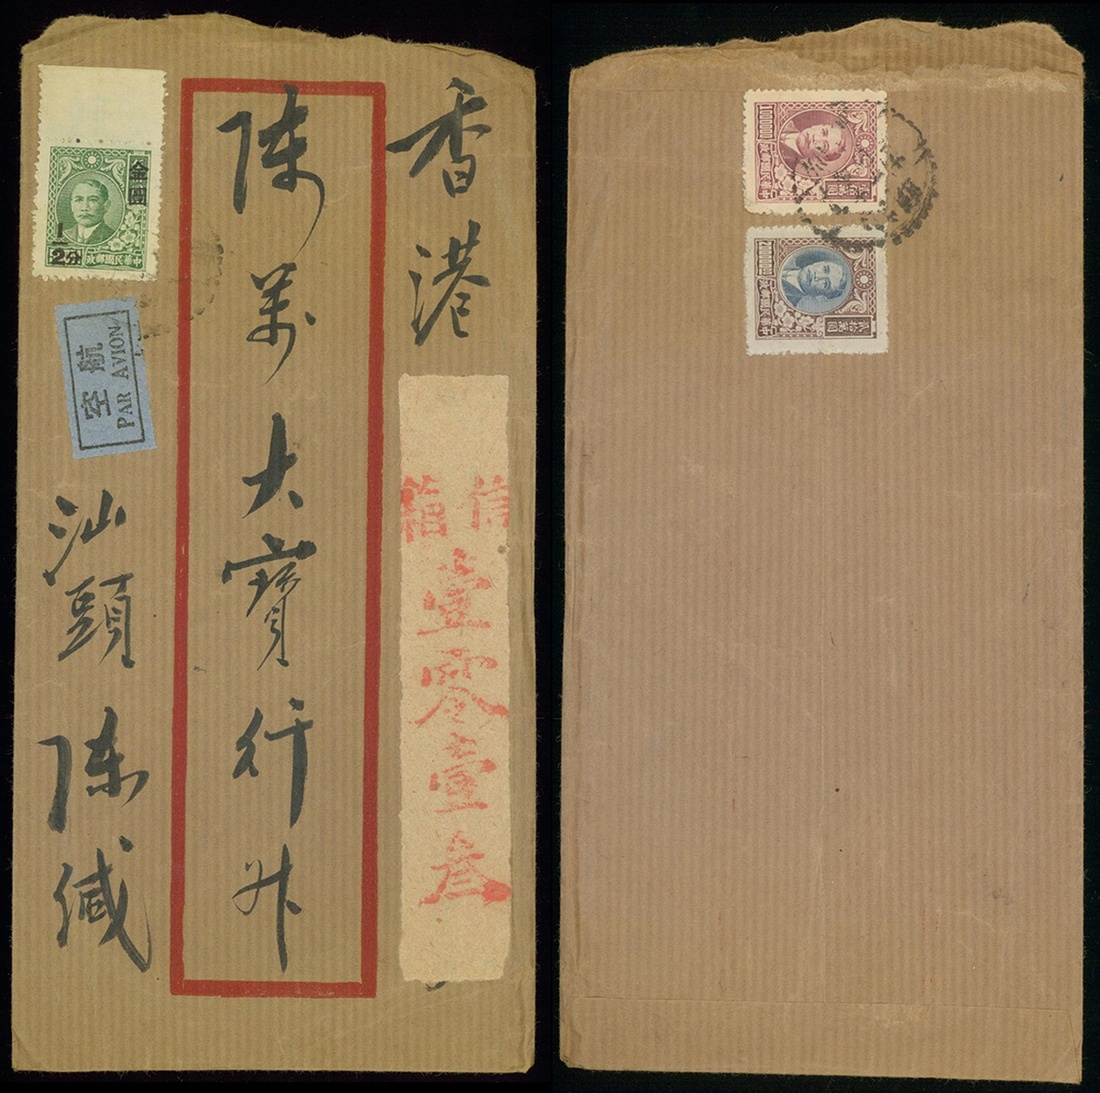 香港
信箱
壹零壹叁
陳萬大寶行升
汕頭 陳緘
金圓
1/2分
中華民國郵政
航空
PAR AVION
中華民國郵政
中華民國郵政
貳拾萬圓